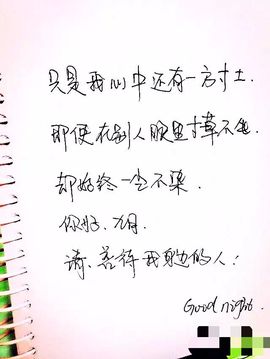 只是我心中还有一方寸土.
即使在别人眼里寸草不生
却始终一尘不染.
你好.九月.
请.善待我身边的人:
Good night.